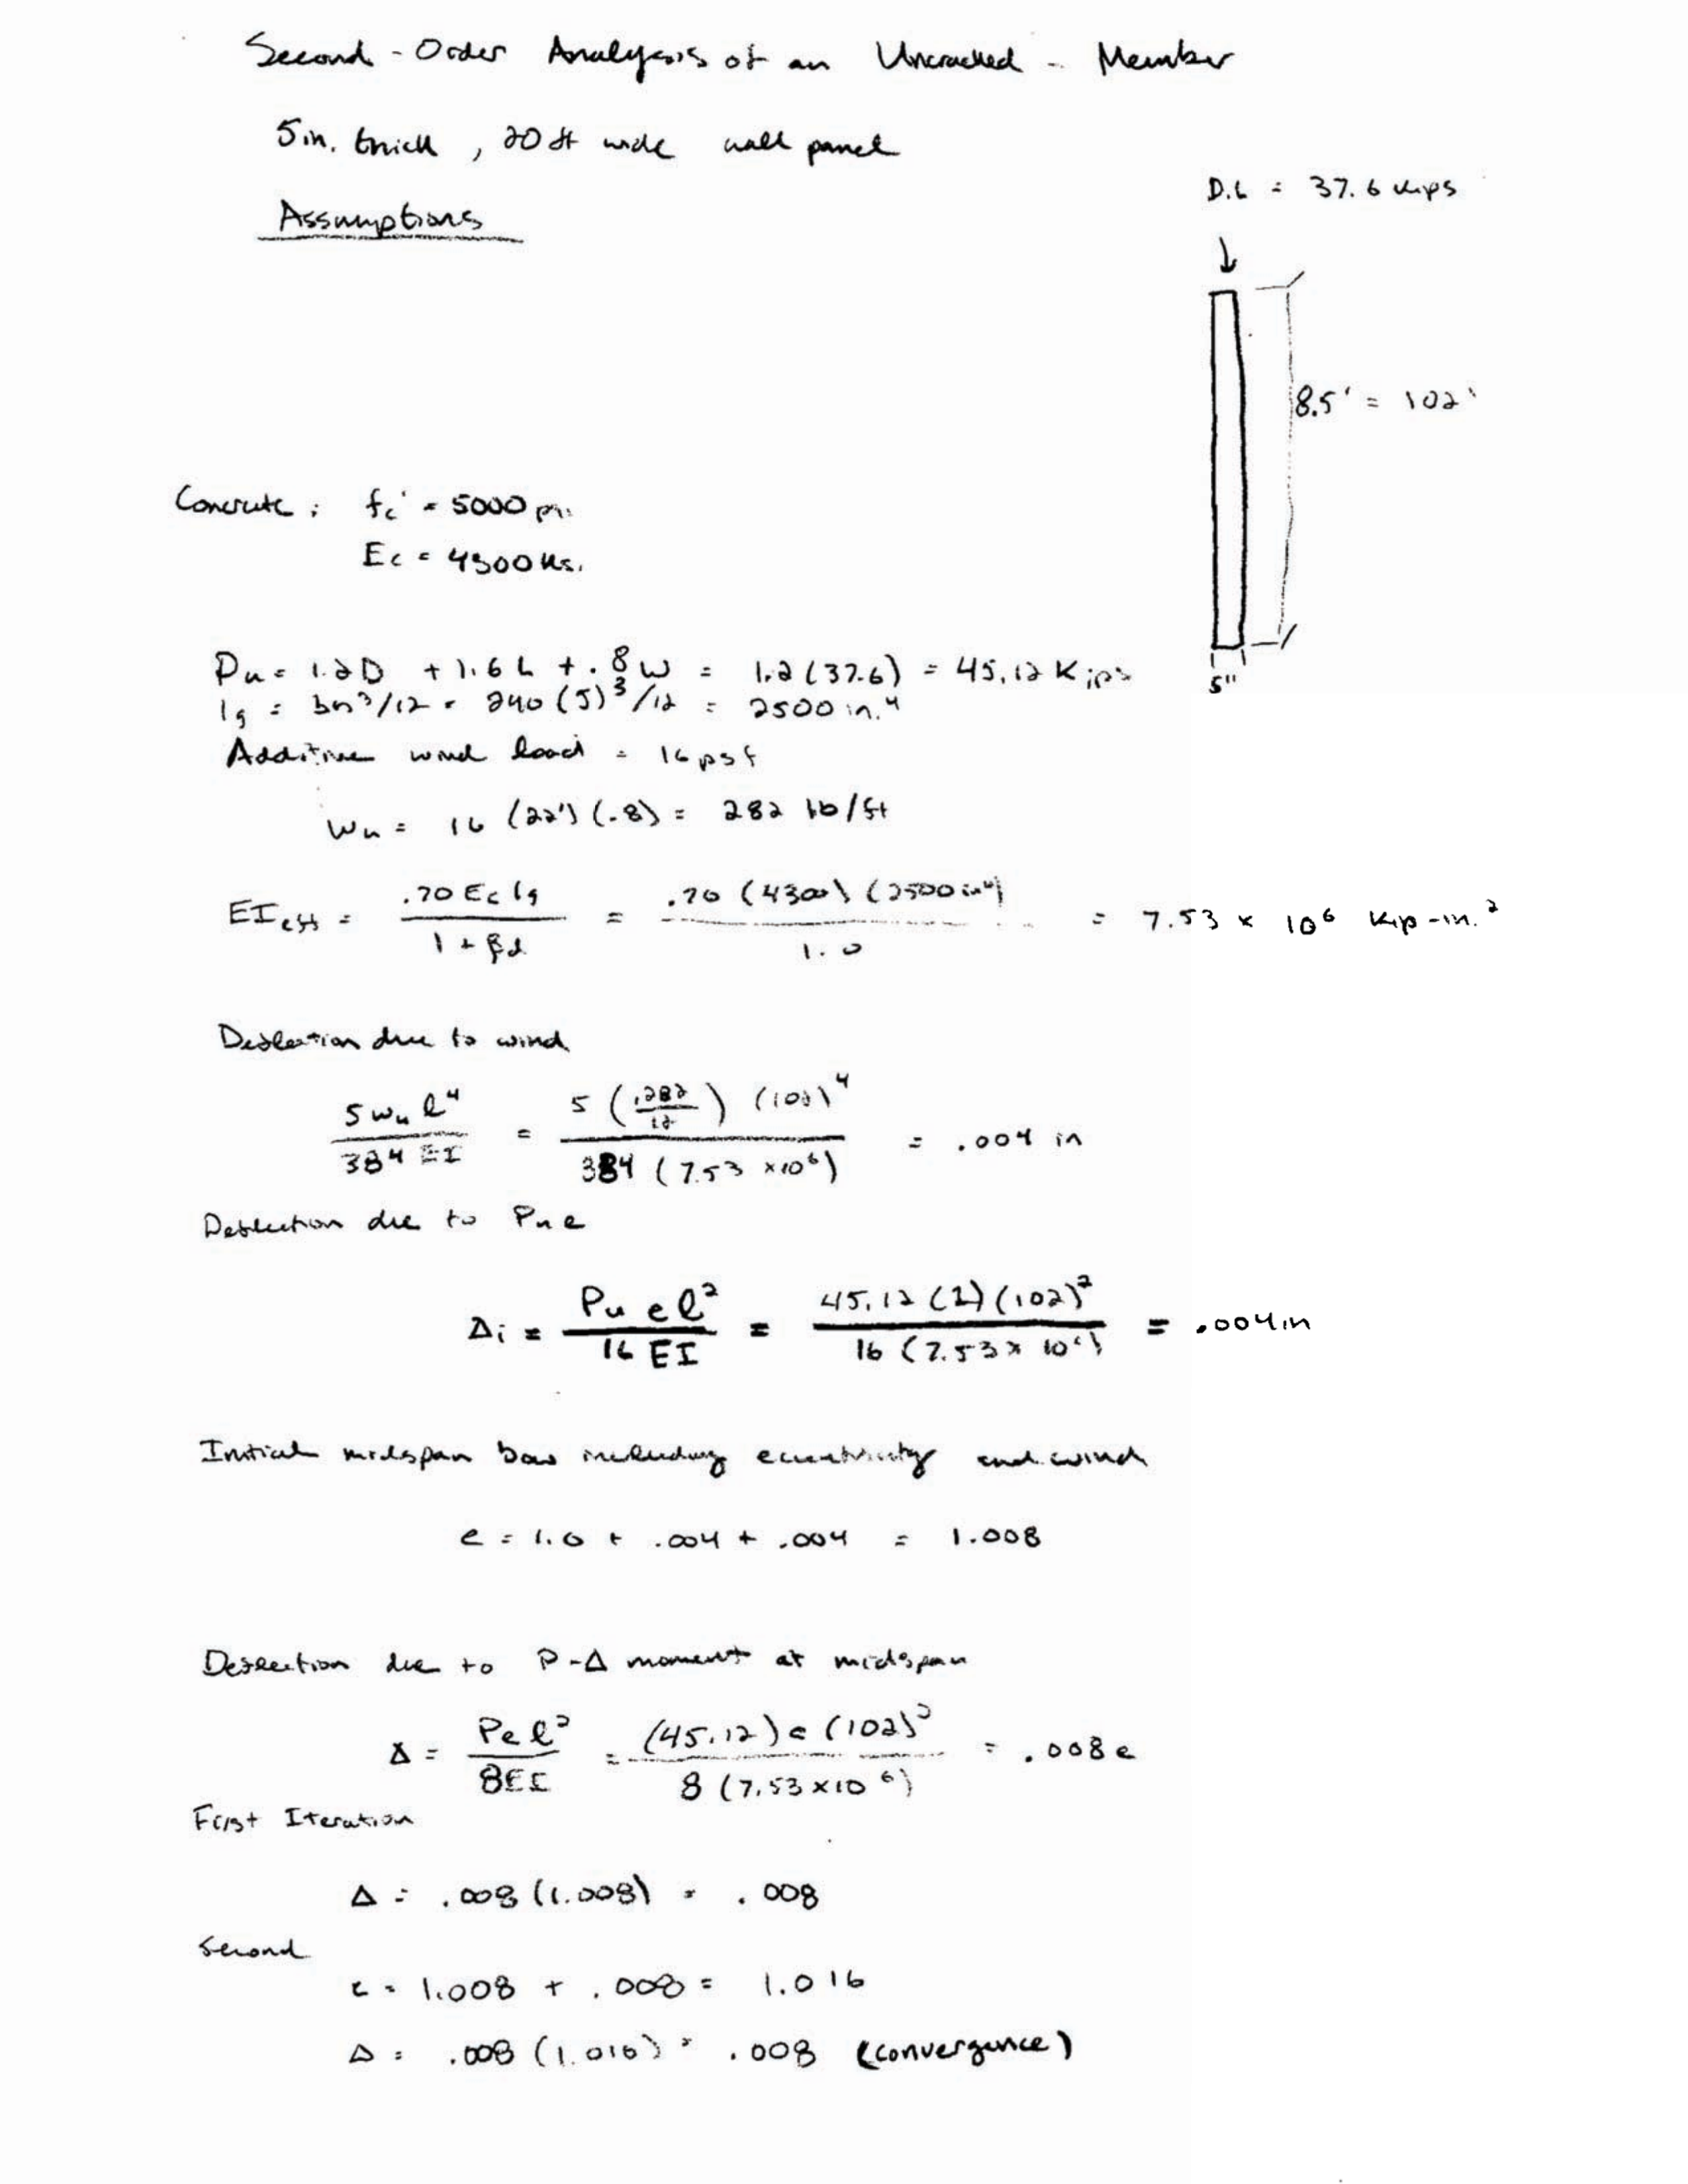 Second - Order Analysis of an Uncracked - Member
5 in. thick , 20 ft wide wall panel
Assumptions
D.L = 37.6 kips
8.5' = 102'
5"
Concrete : fc' = 5000 psi
Ec = 4300 ksi
Pu = 1.2D + 1.6L + .8W = 1.2(37.6) = 45.12 Kips
Ig = bh³/12 = 240(5)³/12 = 2500 in.⁴
Additive wind load = 16 psf
Wu = 16 (22')(.8) = 282 lb/ft
EIeff = .70 Ec Ig / 1 + βd = .70 (4300) (2500 in⁴) / 1.0 = 7.53 x 10⁶ kip-in.²
Deflection due to wind
5 wu ℓ⁴ / 384 EI = 5 (.282/12) (102)⁴ / 384 (7.53 x10⁶) = .004 in
Deflection due to Pu e
Δi = Pu e ℓ² / 16 EI = 45.12 (1)(102)² / 16 (7.53 x 10⁶) = .004 in
Initial midspan bow including eccentricity and wind
e = 1.0 + .004 + .004 = 1.008
Deflection due to P-Δ moment at midspan
Δ = Pe ℓ² / 8EI = (45.12) e (102)² / 8 (7.53 x10⁶) = .008 e
First Iteration
Δ = .008 (1.008) = .008
Second
e = 1.008 + .008 = 1.016
Δ = .008 (1.016) = .008 (convergence)